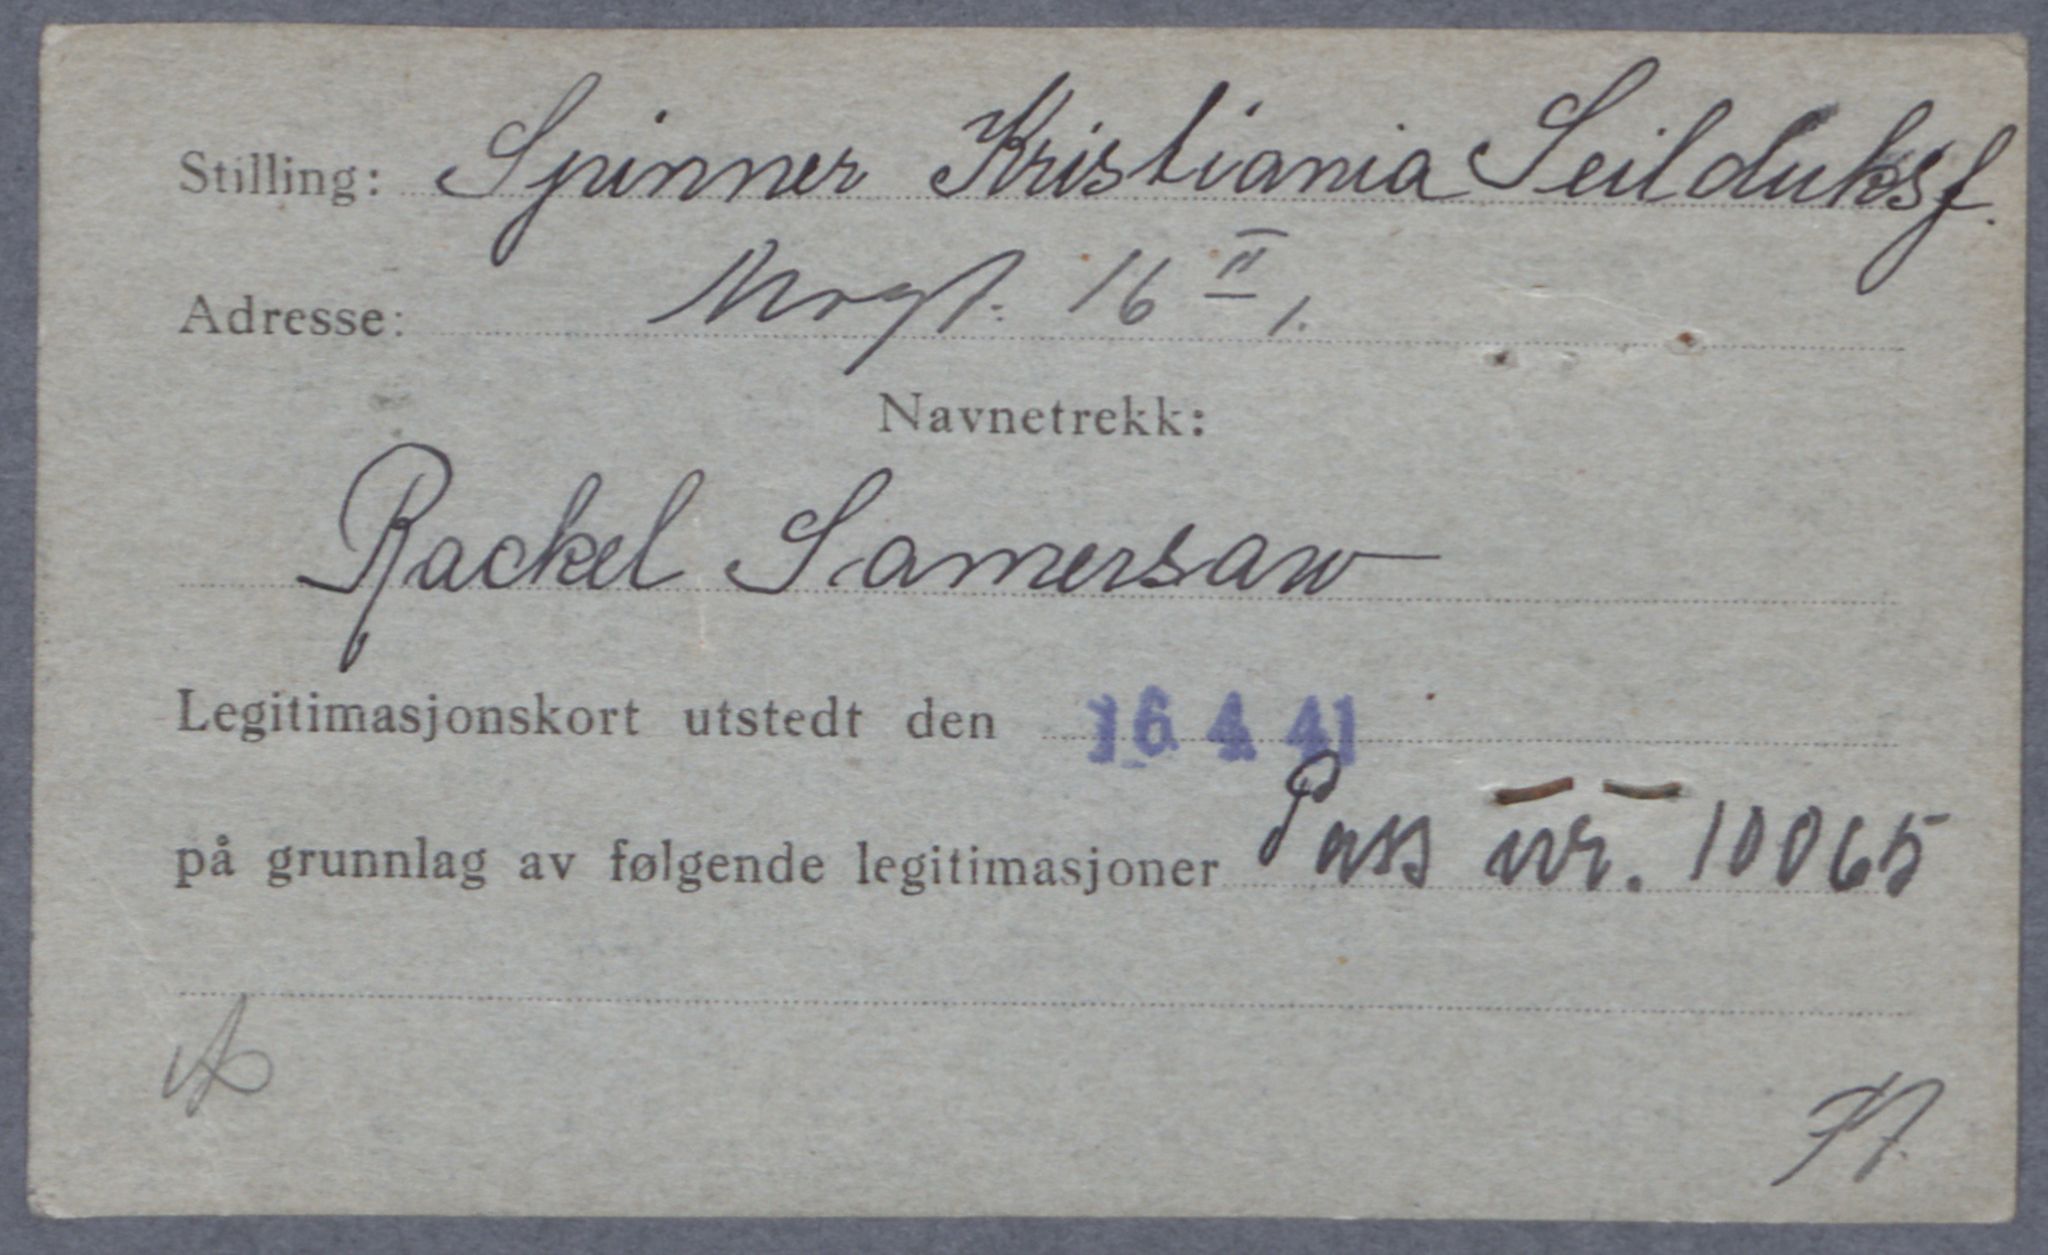 Stilling: Spinner Kristiania Seilduksf.
Adresse: 16 II 1.
Navnetrekk:
Rackel Samersaw
Legitimasjonskort utstedt den 16 4 41
på grunnlag av følgende legitimasjoner Pass nr. 10065